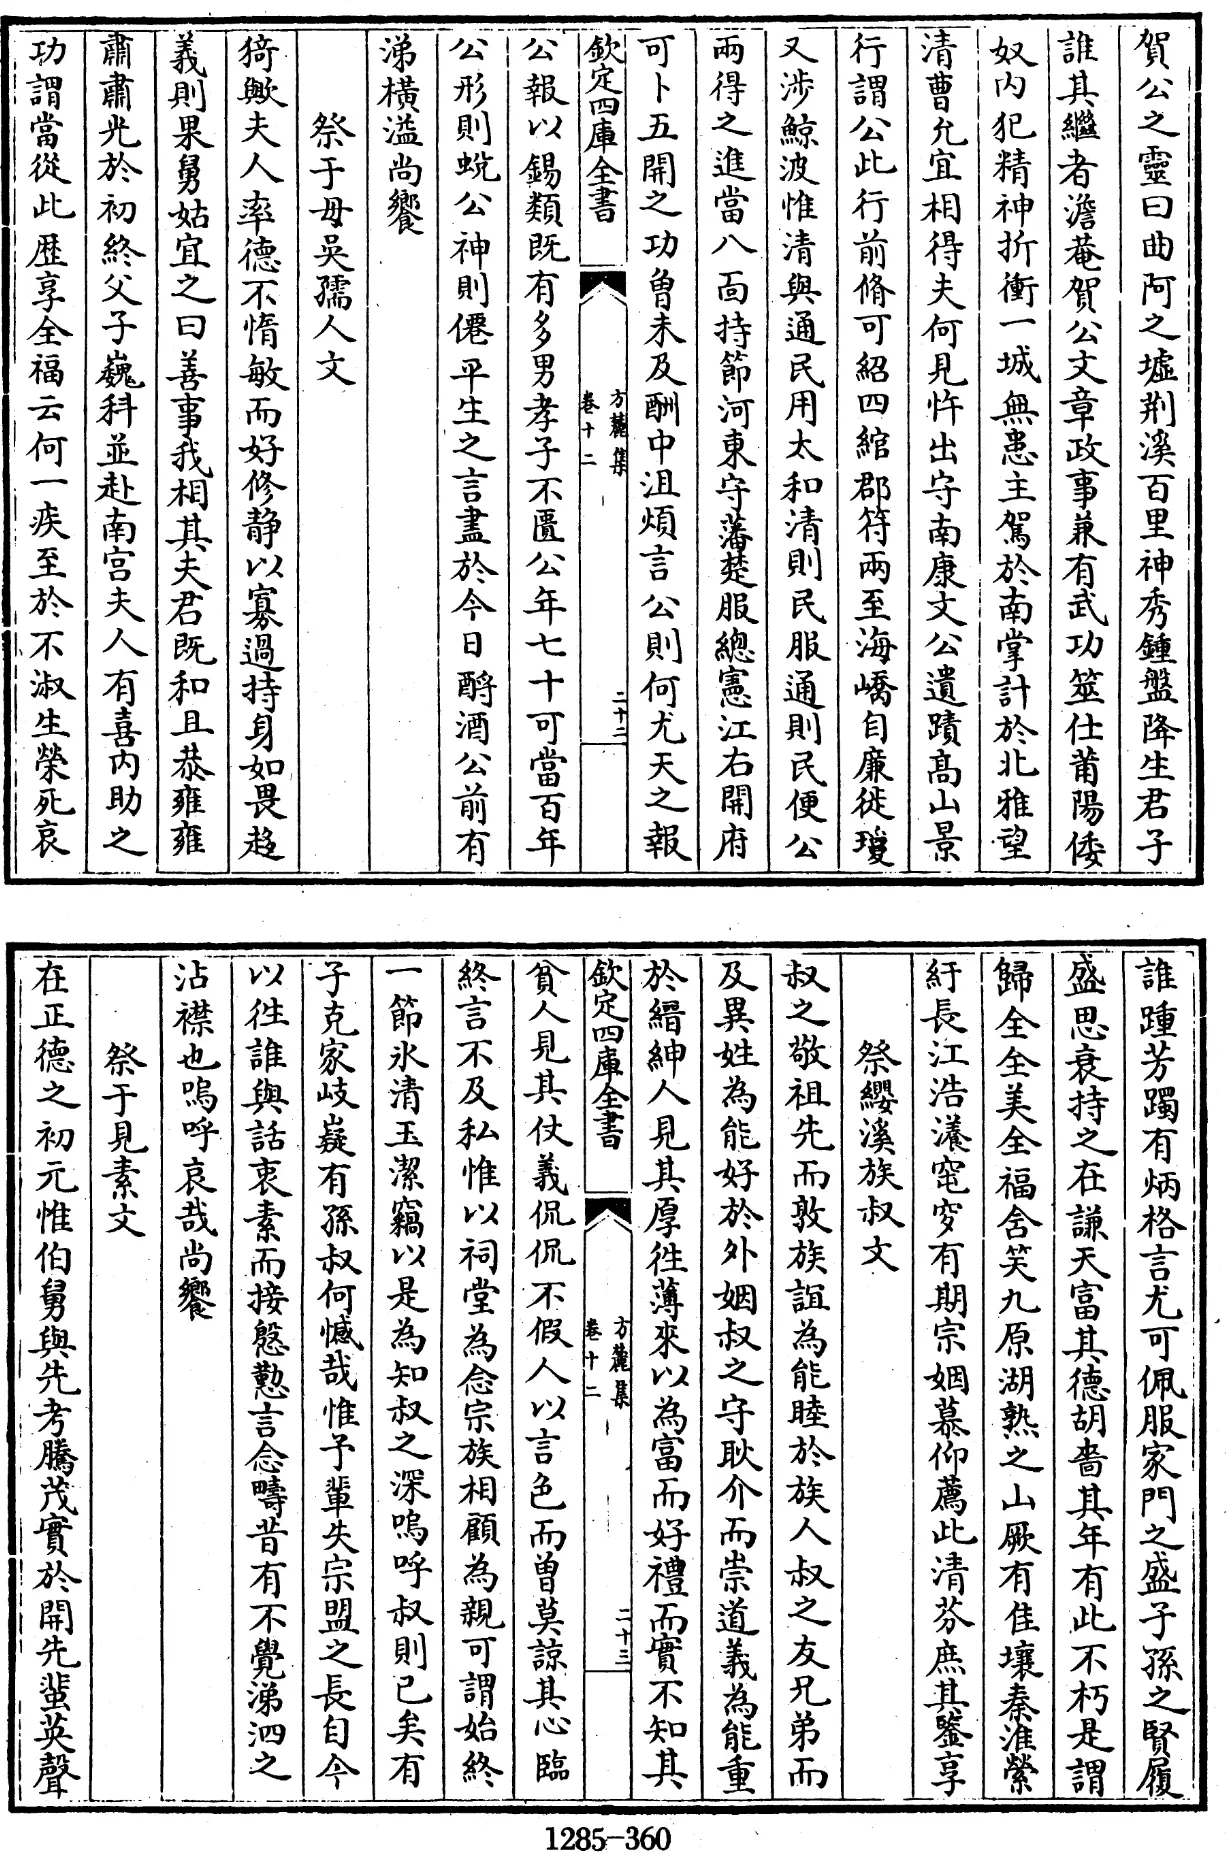 賀公之靈曰曲阿之墟荆溪百里神秀鍾盤降生君子
誰其繼者澹菴賀公文章政事兼有武功筮仕莆陽倭
奴内犯精神折衝一城無患主駕於南掌計於北雅望
清曹允宜相得夫何見忤出守南康文公遺蹟髙山景
行謂公此行前脩可紹四綰郡符兩至海嶠自廉徙瓊
又涉鯨波惟清與通民用太和清則民服通則民便公
兩得之進當八面持節河東守藩楚服總憲江右開府
可卜五開之功曽未及酬中沮煩言公則何尤天之報
欽定四庫全書
方麓集
卷十二
二十二
公報以錫類既有多男孝子不匱公年七十可當百年
公形則蛻公神則僊平生之言盡於今日酹酒公前有
涕橫溢尚饗
祭于母吳孺人文
猗歟夫人率德不惰敏而好修静以寡過持身如畏趍
義則果舅姑宜之曰善事我相其夫君既和且恭雍雍
肅肅光於初終父子巍科並赴南宫夫人有喜内助之
功謂當從此歴享全福云何一疾至於不淑生榮死哀
誰踵芳躅有炳格言尤可佩服家門之盛子孫之賢履
盛思衰持之在謙天富其德胡嗇其年有此不朽是謂
歸全全美全福含笑九原湖熟之山厥有佳壤秦淮縈
紆長江浩瀁窀穸有期宗姻慕仰薦此清芬庶其鑒享
祭纓溪族叔文
叔之敬祖先而敦族誼為能睦於族人叔之友兄弟而
及異姓為能好於外姻叔之守耿介而崇道義為能重
於縉紳人見其厚徃薄來以為富而好禮而實不知其
欽定四庫全書
方麓集
卷十二
二十三
貧人見其仗義侃侃不假人以言色而曽莫諒其心臨
終言不及私惟以祠堂為念宗族相顧為親可謂始終
一節氷清玉潔竊以是為知叔之深嗚呼叔則已矣有
子克家岐嶷有孫叔何憾哉惟予輩失宗盟之長自今
以徃誰與話衷素而接慇懃言念疇昔有不覺涕泗之
沾襟也嗚呼哀哉尚饗
祭于見素文
在正德之初元惟伯舅與先考騰茂實於開先蜚英聲
1285-360